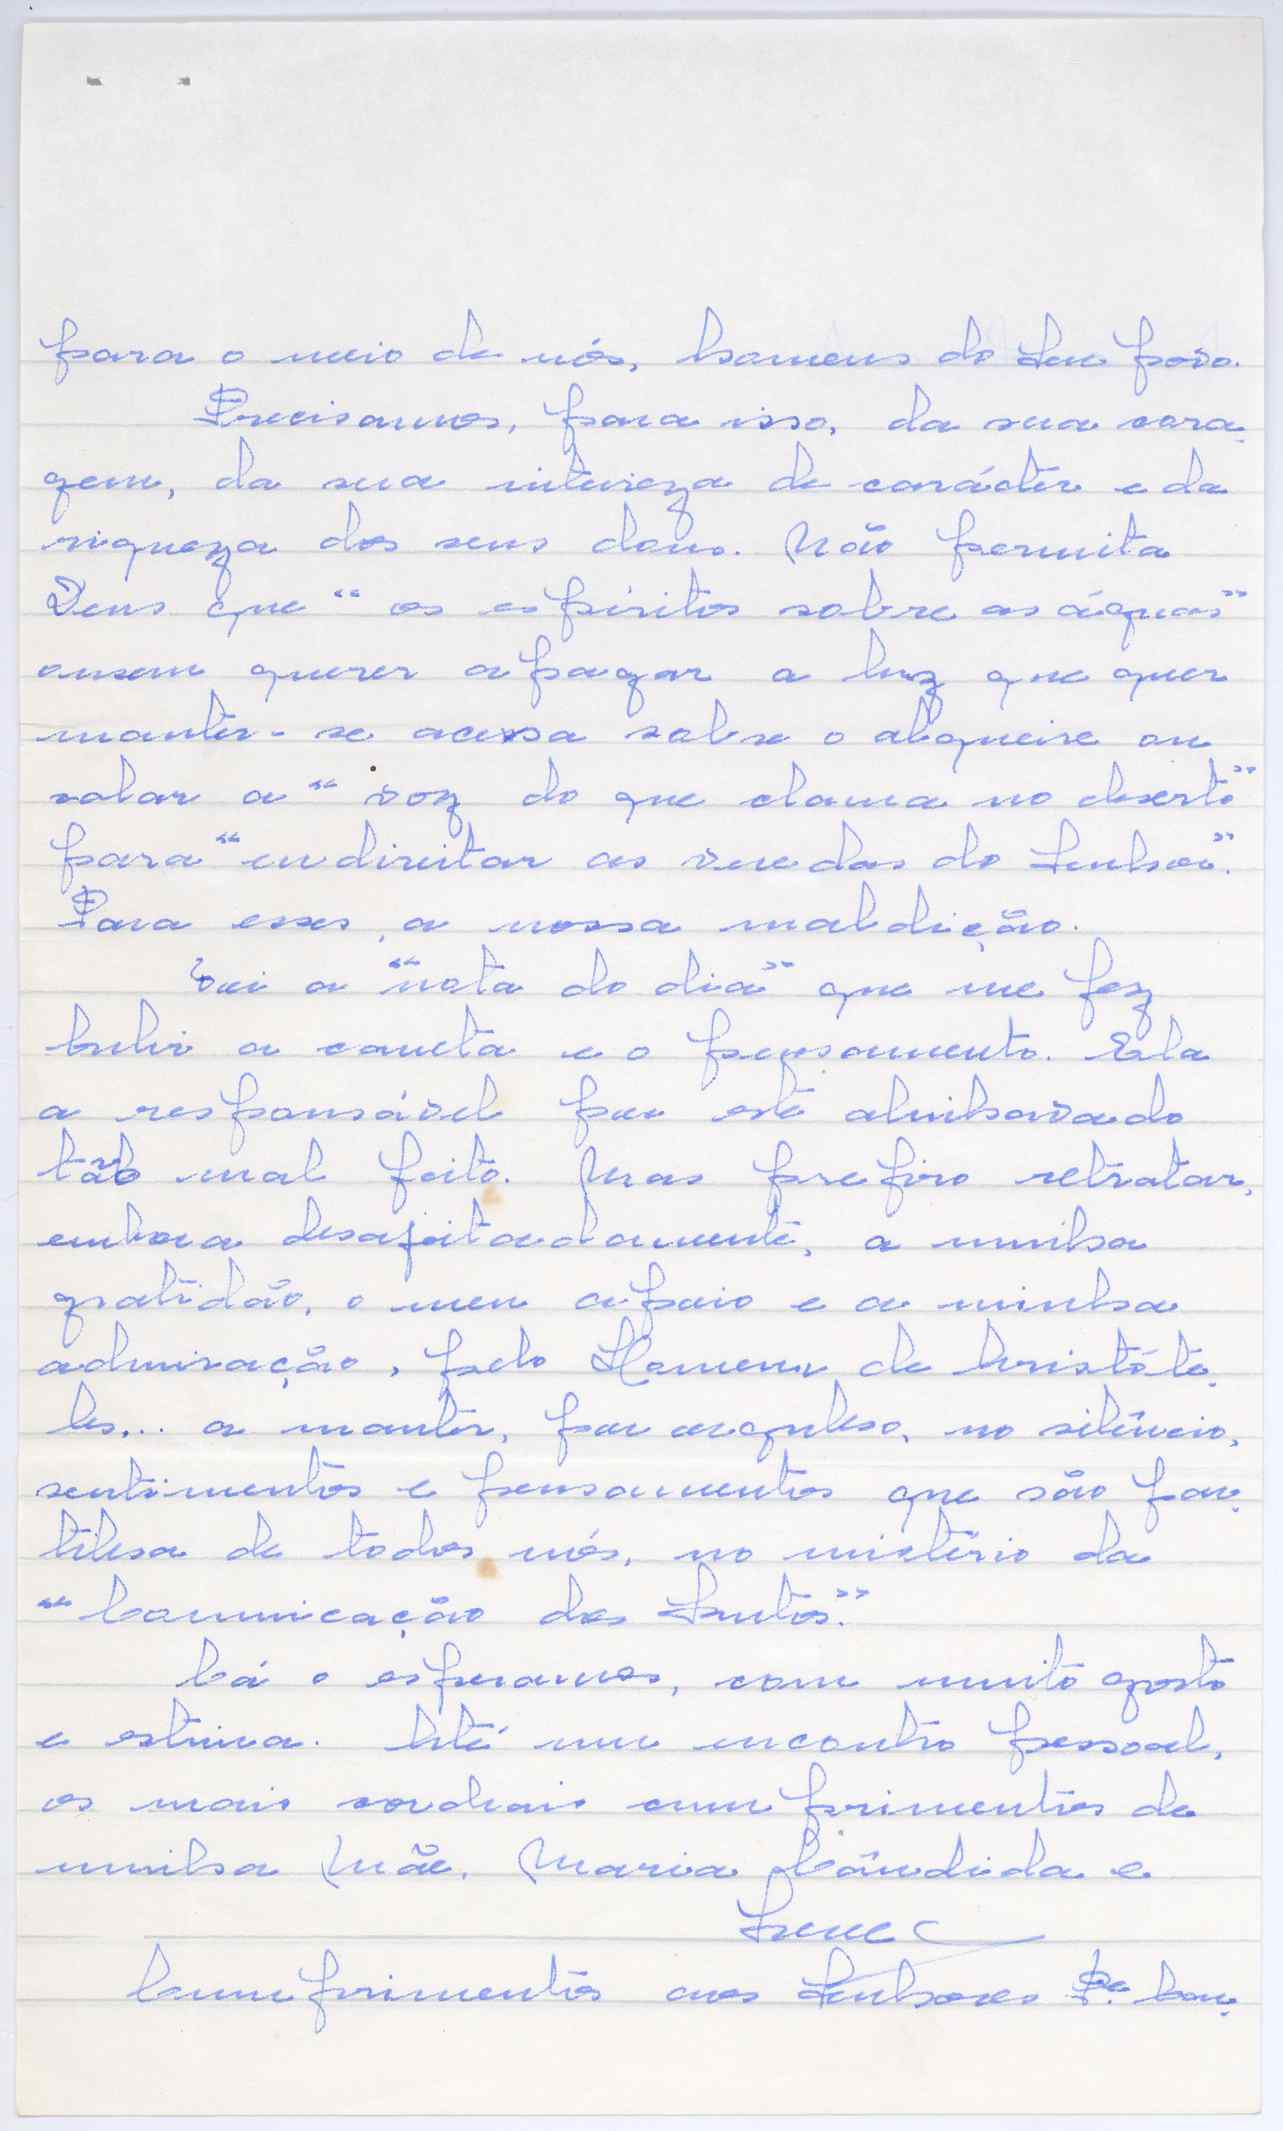 para o meio de nós, homens do Seu povo.
Precisamos, para isso, da sua cora-
gem, da sua inteireza de carácter e da
riqueza dos seus dons. Não permita
Deus que "os espíritos sobre as águas"
ousem querer apagar a luz que quer
manter-se acesa sobre o alqueire ou
calar a "voz do que clama no deserto"
para "endireitar as veredas do Senhor".
Para esses, a nossa maldição.
Foi a "nota do dia" que me fez
bulir a caneta e o pensamento. Ela
a responsável por este alinhavado
tão mal feito. Mas prefiro retratar,
embora desajeitadamente, a minha
gratidão, o meu apoio e a minha
admiração, pelo Homem de Aristóte-
les... a manter, por orgulho, no silêncio,
sentimentos e pensamentos que são par-
tilha de todos nós, no mistério da
"Comunicação dos Santos".
Cá o esperamos, com muito gosto
e estima. Até um encontro pessoal,
os mais cordiais cumprimentos de
minha Mãe, Maria Cândida e
Irene
Cumprimentos aos Senhores Pe.